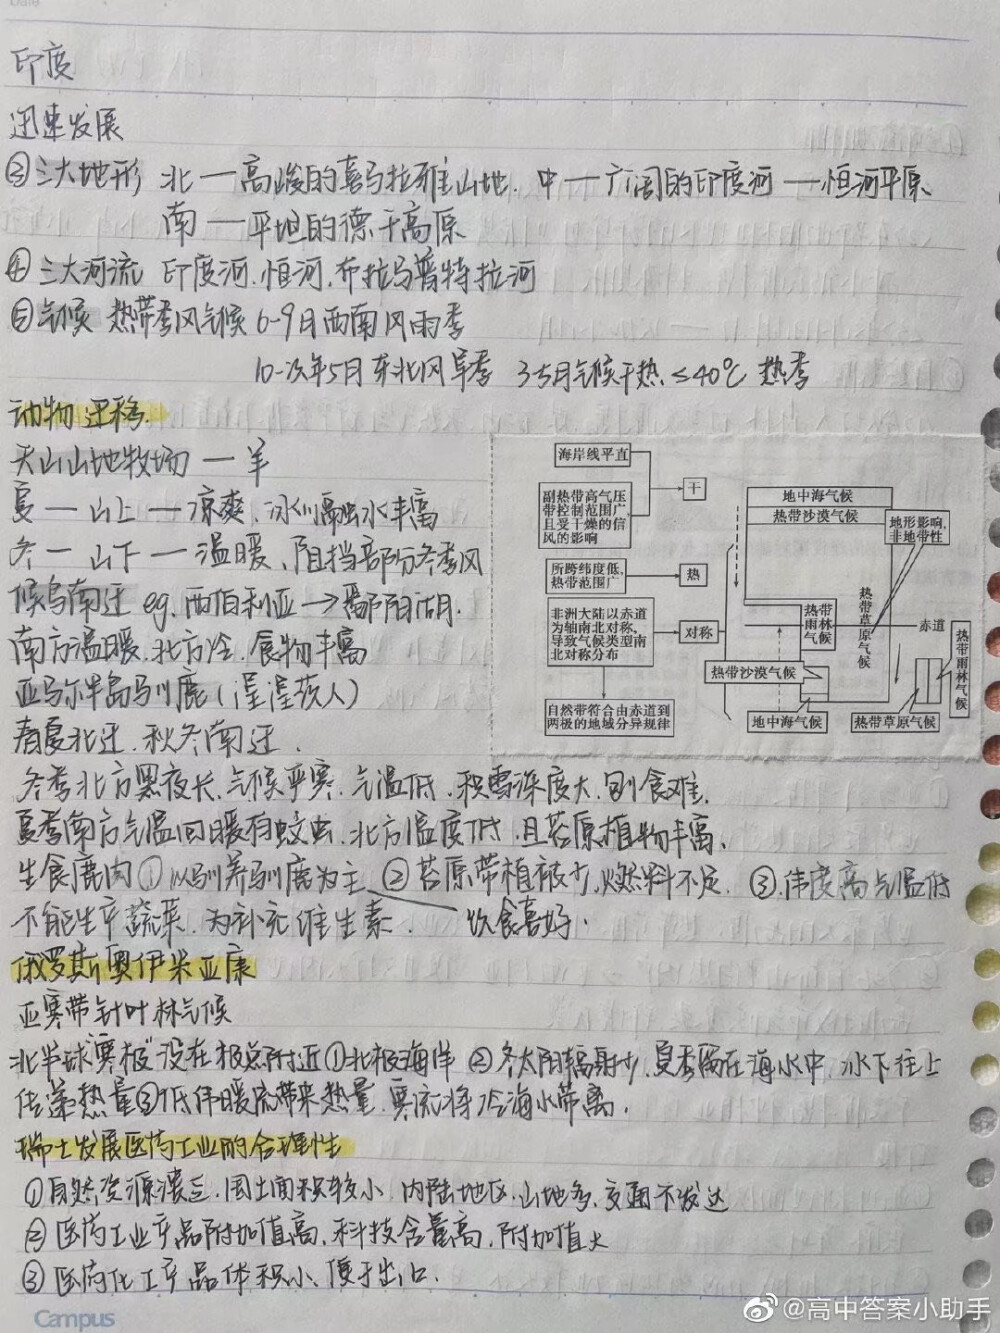 印度
迅速发展
③三大地形 北—高峻的喜马拉雅山地. 中—广阔的印度河—恒河平原
南—平坦的德干高原
④三大河流 印度河.恒河.布拉马普特拉河
⑤气候 热带季风气候 6-9月西南风雨季
10-次年5月东北风旱季 3-5月气候干热≤40℃ 热季
动物迁移.
天山山地牧场—羊
夏—山上—凉爽.冰川融水丰富
冬—山下—温暖、阻挡部分冬季风
候鸟南迁 eg.西伯利亚→鄱阳湖.
南方温暖.北方冷、食物丰富
亚马尔半岛马川鹿(涅涅茨人)
春夏北迁.秋冬南迁.
冬季北方黑夜长.气候严寒.气温低.积雪深度大.刨食难.
夏季南方气温回暖有蚊虫.北方温度低.且苔原植物丰富.
生食鹿肉①以驯养驯鹿为主 ②苔原带植被少.燃料不足. ③.纬度高气温低
不能生产蔬菜.为补充维生素. 饮食喜好.
海岸线平直
干
副热带高气压
带控制范围广,
且受干燥的信
风的影响
所跨纬度低,
热带范围广
热
非洲大陆以赤道
为轴南北对称,
导致气候类型南
北对称分布
对称
自然带符合由赤道到
两极的地域分异规律
地中海气候
热带沙漠气候
地形影响,
非地带性
热带雨林气候
热带草原气候
赤道
热带雨林气候
热带沙漠气候
地中海气候
热带草原气候
俄罗斯奥伊米亚康
亚寒带针叶林气候
北半球"寒极"没在极点附近①北极海洋 ②冬太阳辐射少.夏季留在海水中.冰下往上
传递热量③低纬暖流带来热量.寒流将冷海水带离.
瑞士发展医药工业的合理性
①自然资源匮乏.国土面积较小.内陆地区.山地多.交通不发达
②医药工业产品附加值高.科技含量高.附加值大
③医药化工产品体积小、便于出口.
Campus
@高中答案小助手